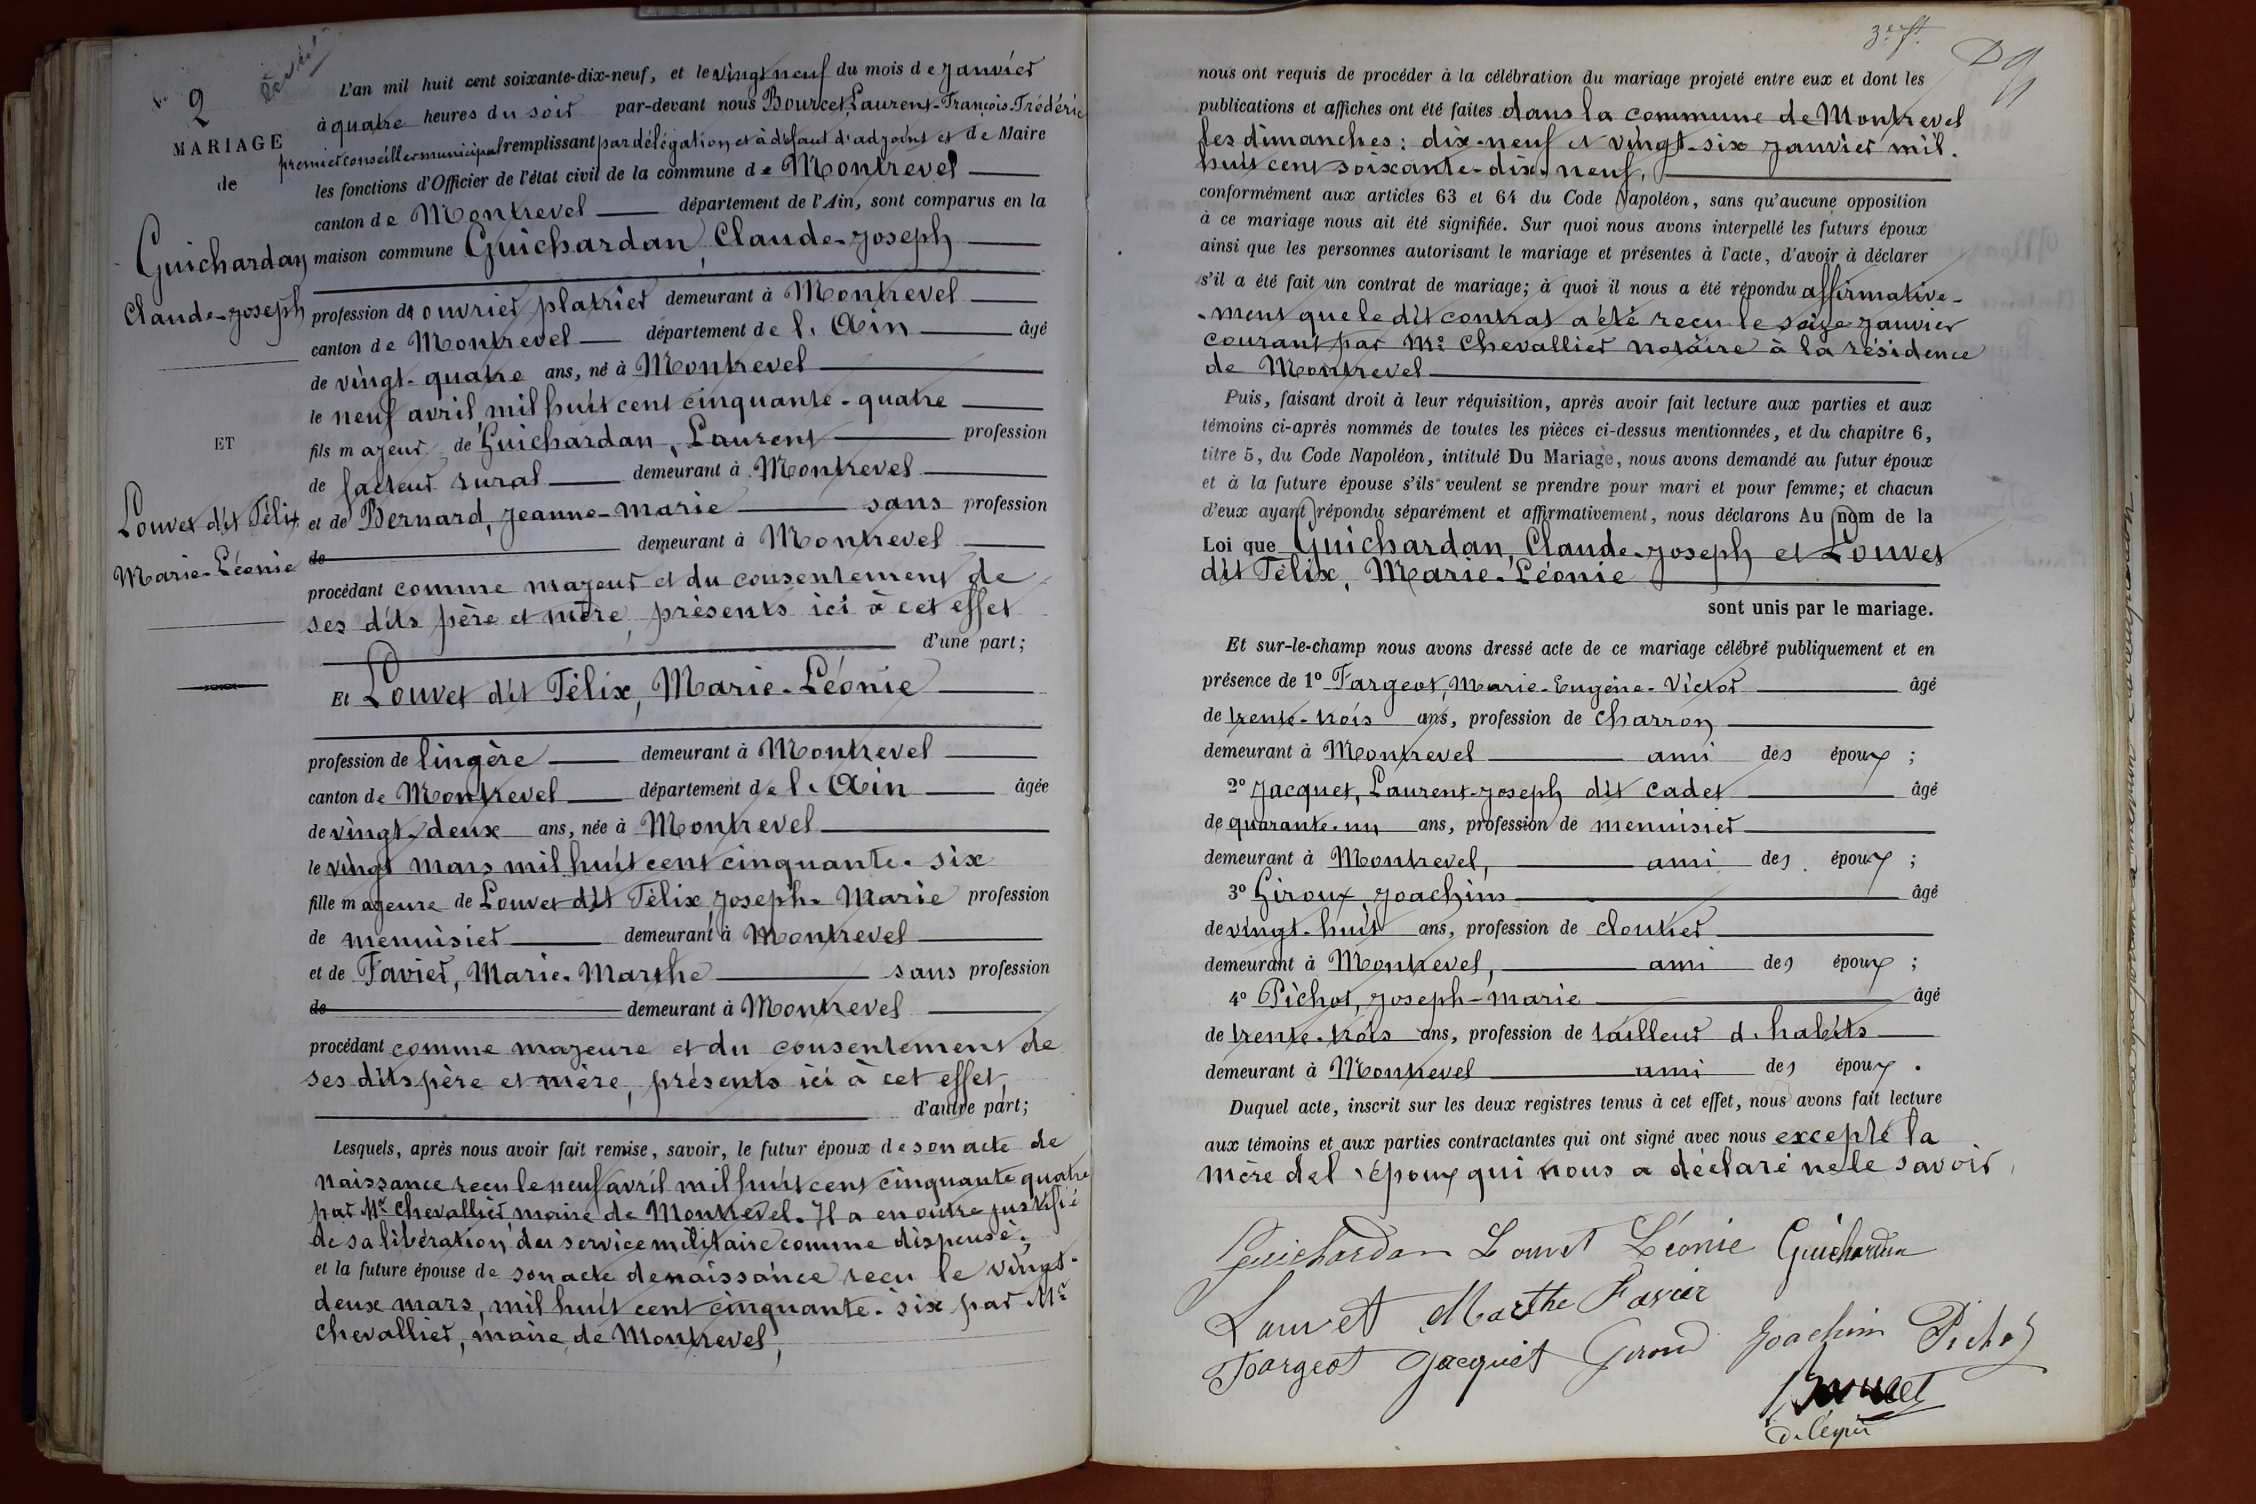 2
MARIAGE
de
Guichardan
Claude-Joseph
ET
Louvet dit Félix
Marie-Léonie
L'an mil huit cent soixante-dix-neuf, et le vingt neuf du mois de Janvier
à quatre heures du soir par-devant nous Bourcet, Laurent-François-Frédéric
premier conseiller municipal remplissant par délégation et à défaut d'adjoint et de Maire
les fonctions d'Officier de l'état civil de la commune de Montrevel
canton de Montrevel département de l'Ain, sont comparus en la
maison commune Guichardan, Claude-Joseph
profession de ouvrier platrier demeurant à Montrevel
canton de Montrevel département de l'Ain âgé
de vingt-quatre ans, né à Montrevel
le neuf avril mil huit cent cinquante-quatre
fils majeur de Guichardan, Laurent profession
de facteur rural demeurant à Montrevel
et de Bernard, Jeanne-Marie sans profession
de demeurant à Montrevel
procédant comme majeur et du consentement de
ses dits père et mère, présents ici à cet effet
d'une part;
Et Louvet dit Félix, Marie-Léonie
profession de lingère demeurant à Montrevel
canton de Montrevel département de l'Ain âgée
de vingt-deux ans, née à Montrevel
le vingt mars mil huit cent cinquante-six
fille majeure de Louvet dit Félix, Joseph-Marie profession
de menuisier demeurant à Montrevel
et de Favier, Marie-Marthe sans profession
de demeurant à Montrevel
procédant comme majeure et du consentement de
ses dits père et mère, présents ici à cet effet,
d'autre part;
Lesquels, après nous avoir fait remise, savoir, le futur époux de son acte de
naissance reçu le neuf avril mil huit cent cinquante quatre
par Mr Chevallier, maire de Montrevel. Il a en outre justifié
de sa libération du service militaire comme dispensé;
et la future épouse de son acte de naissance reçu le vingt-
deux mars, mil huit cent cinquante-six par Mr
Chevallier, maire de Montrevel,
3e ft.
nous ont requis de procéder à la célébration du mariage projeté entre eux et dont les
publications et affiches ont été faites dans la commune de Montrevel
les dimanches: dix-neuf et vingt-six Janvier mil
huit cent soixante-dix-neuf,
conformément aux articles 63 et 64 du Code Napoléon, sans qu'aucune opposition
à ce mariage nous ait été signifiée. Sur quoi nous avons interpellé les futurs époux
ainsi que les personnes autorisant le mariage et présentes à l'acte, d'avoir à déclarer
s'il a été fait un contrat de mariage; à quoi il nous a été répondu affirmative-
-ment que le dit contrat a été reçu le seize Janvier
courant par Me Chevallier notaire à la résidence
de Montrevel
Puis, faisant droit à leur réquisition, après avoir fait lecture aux parties et aux
témoins ci-après nommés de toutes les pièces ci-dessus mentionnées, et du chapitre 6,
titre 5, du Code Napoléon, intitulé Du Mariage, nous avons demandé au futur époux
et à la future épouse s'ils veulent se prendre pour mari et pour femme; et chacun
d'eux ayant répondu séparément et affirmativement, nous déclarons Au nom de la
Loi que Guichardan, Claude-Joseph et Louvet
dit Félix, Marie-Léonie
sont unis par le mariage.
Et sur-le-champ nous avons dressé acte de ce mariage célébré publiquement et en
présence de 1º Fargeot, Marie-Eugène-Victor âgé
de trente-trois ans, profession de charron
demeurant à Montrevel ami des époux ;
2º Jacquet, Laurent-Joseph dit Cadet âgé
de quarante-un ans, profession de menuisier
demeurant à Montrevel, ami des époux ;
3º Giroux Joachim âgé
de vingt-huit ans, profession de cloutier
demeurant à Montrevel, ami des époux ;
4º Pichot, Joseph-Marie âgé
de trente-trois ans, profession de tailleur d'habits
demeurant à Montrevel ami des époux .
Duquel acte, inscrit sur les deux registres tenus à cet effet, nous avons fait lecture
aux témoins et aux parties contractantes qui ont signé avec nous excepté la
mère de l'époux qui nous a déclaré ne le savoir
Guichardan Louvet Léonie Guichardan
Louvet Marthe Favier
Fargeot Jacquet Giroud Joachim Pichot
Bourcet
délégué